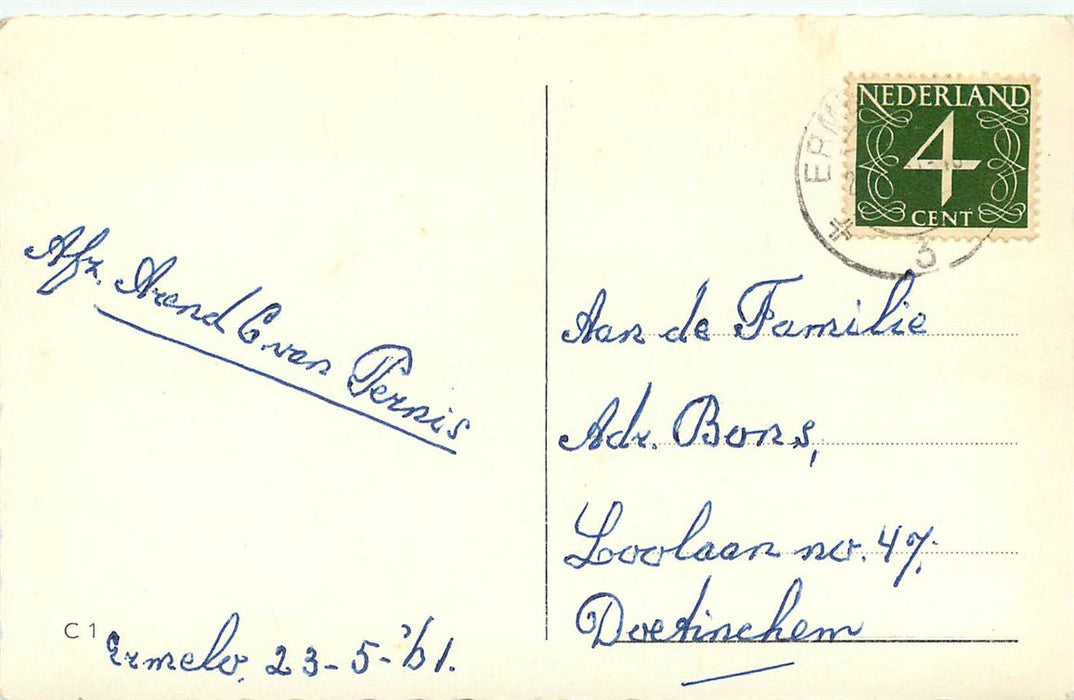 NEDERLAND
4
CENT
ERM
3
Afz. Arend C. van Pernis
Aan de Familie
Adr. Bons,
Loolaan no. 47.
Doetinchem
C 1
Ermelo, 23-5-'61.